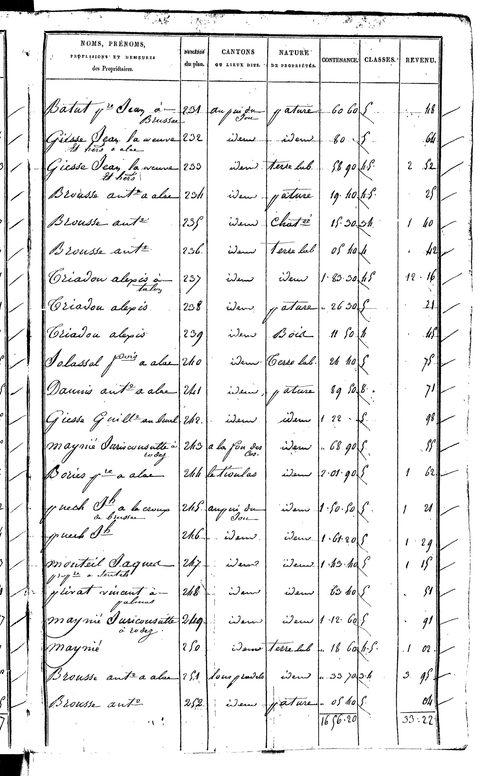 NOMS, PRÉNOMS, PROFESSIONS ET DEMEURES des Propriétaires. NUMÉROS du plan. CANTONS OU LIEUX DITS. NATURE DE PROPRIÉTÉS. CONTENANCE. CLASSES. REVENU.
Batut pre Jean à Brusse 231 au pei du Jou pature 60 60 5 48
Giesse Jean la veuve et hers a alac 232 idem idem 80 5 64
Giesse Jean la veuve et hers 233 idem terre lab. 58 90 4.5 2 52
Brousse ante a alac 234 idem pature 19 40 4.5 25
Brousse ante 235 idem 15 30 3.4 1 40
Brousse ante 236 idem terre lab 05 40 4 42
Criadou alexis à 237 idem idem 1.83.30 4.5 12.16
Criadou alexis 238 idem pature 26 30 5 21
Criadou alexis 239 idem Bois 11 50 4 45
a alac 240 idem Terre lab. 24 40 5 75
Daunis ante a alac 241 idem pature 89 50 5 71
Giesse Guille 242 idem idem 1 22 5 98
maynié Jurisconsulte à rodez 243 a la fon des idem 68 90 5 55
Bories pre a alac 244 idem 2.01.90 5 1 62
puech Jh a la croux 245 au pei du Jou idem 1.50.50 5 1 21
puech Jh 246 idem idem 1.61.20 5 1 29
monteil Jaques 247 idem idem 1.43.40 5 1 15
privat vincent à palmas 248 idem idem 63 40 5 51
maynié Jurisconsulte à rodez 249 idem idem 1.12.60 5 91
maynié 250 idem terre lab 18 60 4.5 1 02
Brousse ante a alac 251 idem 33 70 3.4 3 95
Brousse ante 252 idem pature 05 40 5 04
16 56.20 33.22